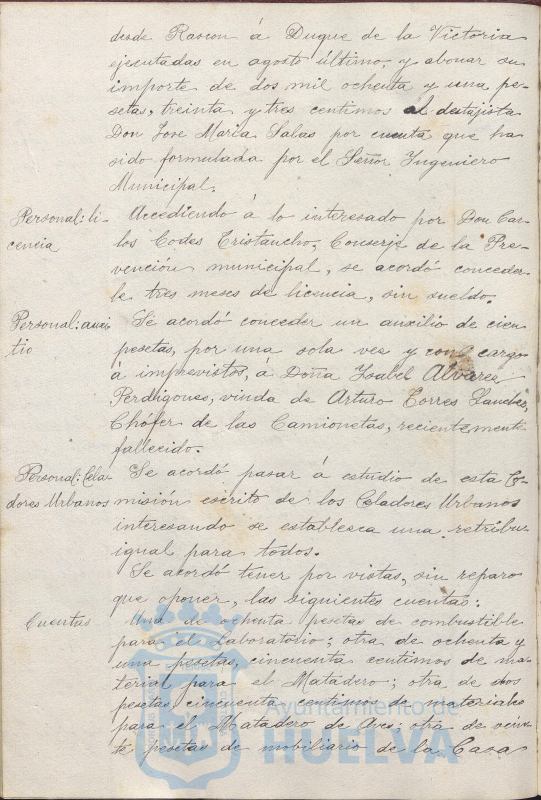 desde Rascon á Duque de la Victoria
ejecutadas en agosto último, y abonar su
importe de dos mil ochenta y una pe-
setas, treinta y tres centimos al destajista
Don Jose María Salas por cuenta que ha
sido formulada por el Señor Ingeniero
Municipal.
Personal: li-
cencia
Accediendo á lo interesado por Don Car-
los Codes Cristancho, Conserje de la Pre-
vención municipal, se acordó conceder-
le tres meses de licencia, sin sueldo.
Personal: auxi
lio
Se acordó conceder un auxilio de cien
pesetas, por una sola vez y con cargo
á imprevistos, á Doña Isabel Alvarez
Perdigones, viuda de Arturo Torres Sanchez,
Chófer de las Camionetas, recientemente
fallecido.
Personal: Cela-
dores Urbanos
Se acordó pasar á estudio de esta Co-
misión escrito de los Celadores Urbanos
interesando se establezca una retribu-
igual para todos.
Se acordó tener por vistas, sin reparo
que oponer, las siguientes cuentas:
Cuentas
Una de ochenta pesetas de combustible
para el Laboratorio; otra de ochenta y
una pesetas, cincuenta centimos de ma-
terial para el Matadero; otra de dos
pesetas cincuenta centimos de materiales
para el Matadero de Aves; otra de vein-
te pesetas de mobiliario de la Casa
Ayuntamiento de
HUELVA